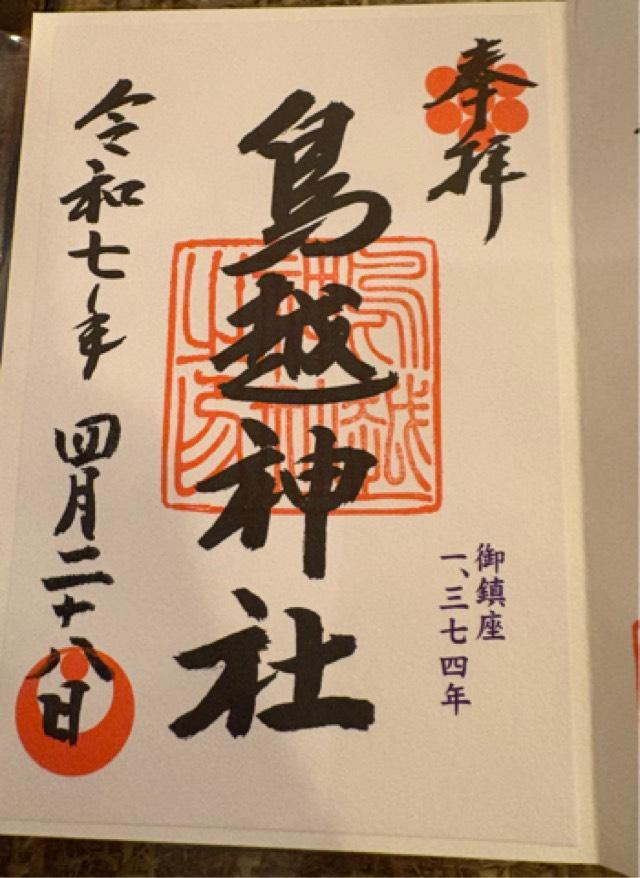 奉拝
御鎮座
一、三七四年
鳥越神社
令和七年 四月二十八日